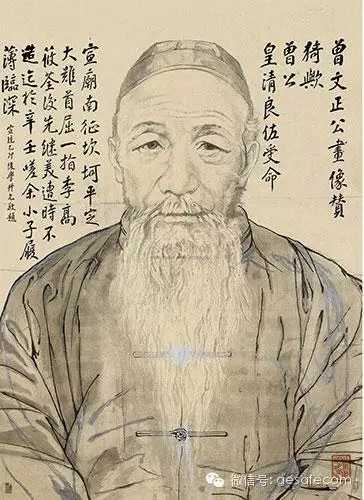 曾文正公畫像贊
猗歟
曾公
皇清良佐受命
宣廟南征坎坷平定
大難首屈一指李高
筱荃後先繼美遭時不
造迄於辛壬嗟余小子履
薄臨深
後學 敬題
微信号: gesafe.com